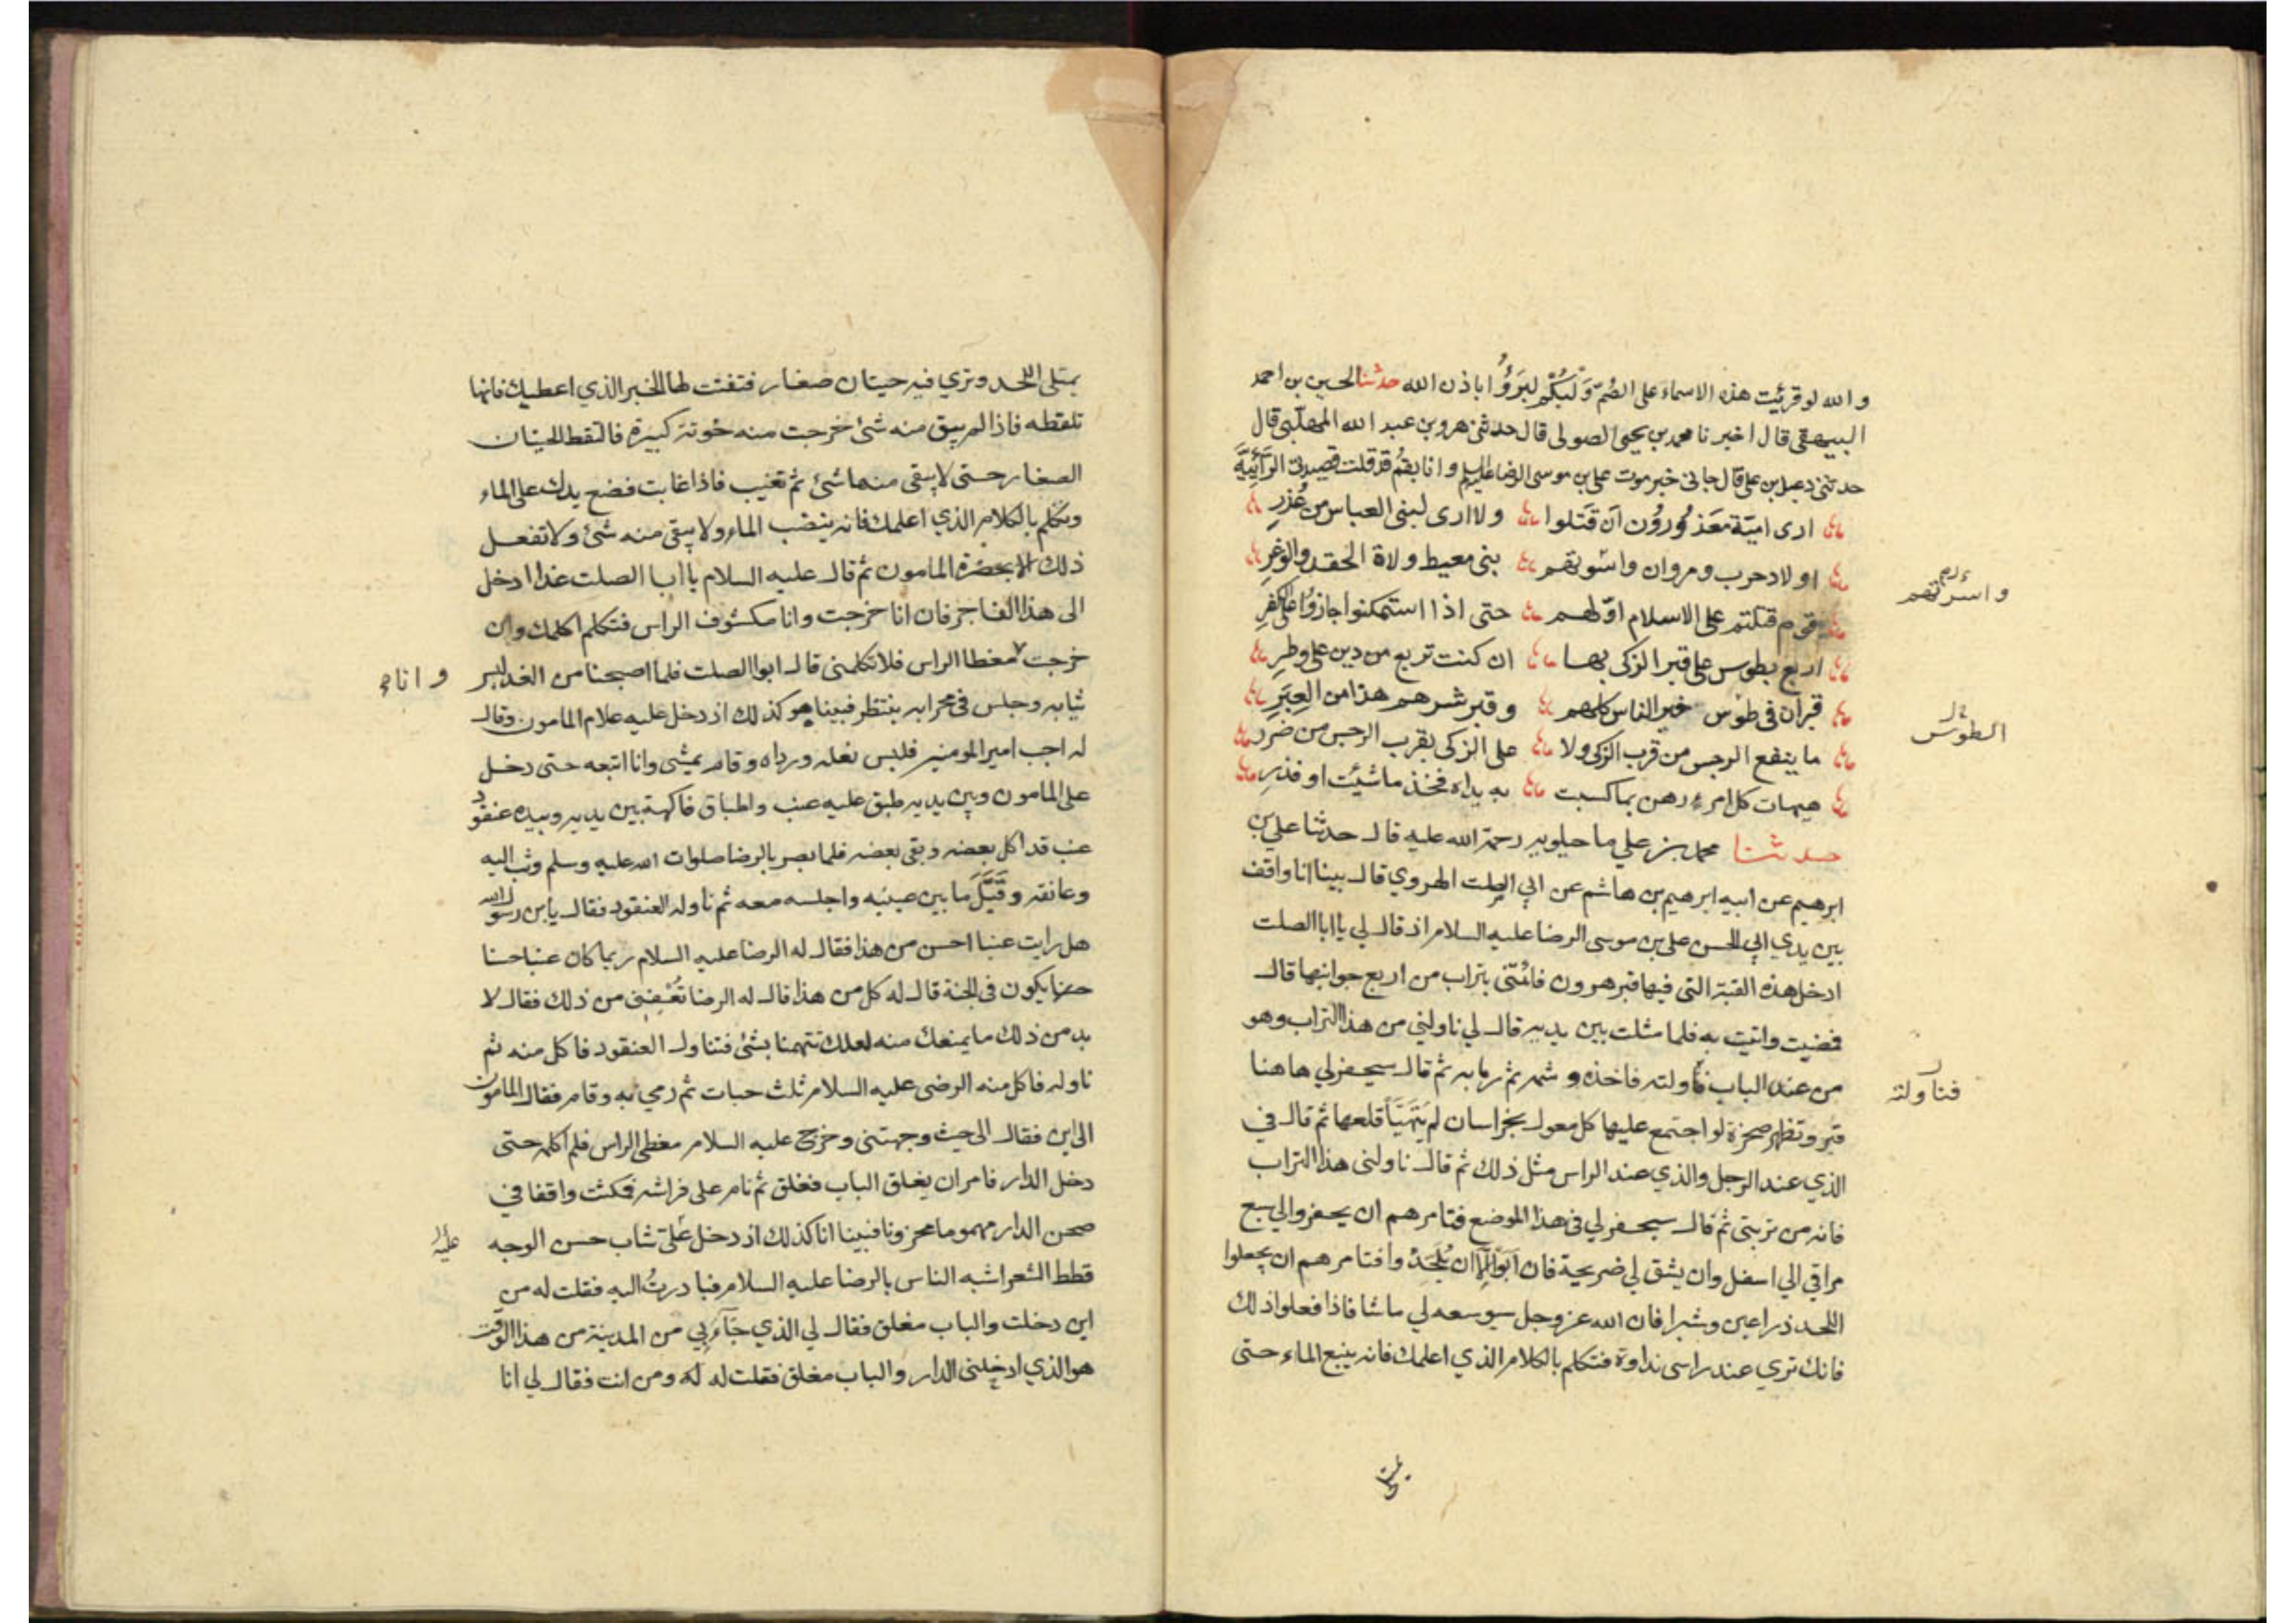 والله لو قرئيت هذه الاسماء على الصُمّ وَ لَبُكُم لبَرَؤُا باذن الله حدثنا الحسين بن احمد
البيهقى قال اخبرنا محمد بن يحيى الصولى قال حدثنى هرون بن عبد الله المهلّبى قال
حدثنى دعبل بن على قال جائنى خبر موت على بن موسى الرضا عليه السلام وانا بقُم قد قلت قصيدتى الرّائِيّة
ارى اميّة معَذورُون اَن قَتَلوا ولا ارى لبنى العباس من عُذرِ
اولاد حرب ومروان واسوتهم بنى معيط ولاة الحقد والوغرِ
قوم قتلتم على الاسلام اوّلهم حتى اذا استمكنوا جازوا على الكفرِ
اربع بطوس على قبر الزكى بها ان كنت تربع من دين على وطرِ
قبران فى طوْس خير الناس كلهم وقبر شرهم هذا من العِبَرِ
ما ينفع الرجس من قرب الزكى ولا على الزكى بقرب الرجس من ضررِ
هيهات كل امرء رهن بما كسبت به يداه فخذ ما شيئت او فذرِ
حدثنا محمد بن علي ماجيلويه رحمة الله عليه قال حدثنا علي بن
ابرهيم عن ابيه ابرهيم بن هاشم عن ابي الصلت الهروي قال بينا انا واقف
بين يدي ابي الحسن على بن موسى الرضا عليه السلام اذ قال لي يا ابا الصلت
ادخل هذه القبة التى فيها قبر هرون فائتنى بتراب من اربع جوانبها قال
فمضيت واتيت به فلما مثلت بين يديه قال لي ناولني من هذا التراب وهو
من عند الباب فناولته فاخذه وشمه ثم رما به ثم قال سيحفر لي هاهنا
قبر وتظهر صخرة لو اجتمع عليها كل معول بخراسان لم يَتَهَيّأ قلعها ثم قال في
الذي عند الرجل والذي عند الراس مثل ذلك ثم قال ناولنى هذا التراب
فانه من تربتى ثم قال سيحفر لي فى هذا الموضع فتامرهم ان يحفروا لي سبع
مراقي الي اسفل وان يشق لي ضريحة فان اَبَوا اِلّا ان يُلحَدُوا فتامرهم ان يجعلوا
اللحد ذراعين وشبرا فان الله عز وجل سيوسعه لي ما شا فاذا فعلوا ذلك
فانك تري عند راسى نداوة فتكلم بالكلام الذي اعلمك فانه ينبع الماء حتى
واسرتهم
الطوس
فناولته
يمتلى اللحد وتري فيه حيتان صغار فتفتت لها الخبز الذي اعطيك فانها
تلتقطه فاذا لم يبق منه شئ خرجت منه حوتة كبيرة فالتقط الحيتان
الصغار حتى لا يبقى منها شئ ثم تغيب فاذا غابت فضع يدك على الماء
وتكلم بالكلام الذي اعلمك فانه ينضب الماء ولا يبقى منه شئ ولا تفعل
ذلك الا بحضرة المامون ثم قال عليه السلام يا ابا الصلت غدا ادخل
الى هذا الفاجر فان انا خرجت وانا مكشوف الراس فتكلم اكلمك وان
خرجت مغطا الراس فلا تكلمنى قال ابو الصلت فلما اصبحنا من الغد لبس
ثيابه وجلس فى محرابه ينتظر فبينا هو كذلك اذ دخل عليه غلام المامون وقال
له اجب امير المومنين فلبس نعله ورداه وقام يمشى وانا اتبعه حتى دخل
على المامون وبين يديه طبق عليه عنب واطباق فاكهة بين يديه وبيده عنقود
عنب قد اكل بعضه وبقى بعضه فلما بصر بالرضا صلوات الله عليه وسلم وثب اليه
وعانقه وقَبَّلَ ما بين عينيه واجلسه معه ثم ناوله العنقود فقال يابن رسول الله
هل رايت عنبا احسن من هذا فقال له الرضا عليه السلام ربما كان عنبا حسنا
حسنا يكون فى الجنة قال له كل من هذا قال له الرضا تُعْفِينى من ذلك فقال لا
بد من ذلك ما يمنعك منه لعلك تتهمنا بشئ فتناول العنقود فاكل منه ثم
ناوله فاكل منه الرضى عليه السلام ثلث حبات ثم رمي به وقام فقال المامون
الى اين فقال الى حيث وجهتنى وخرج عليه السلام مغطى الراس فلم اكلمه حتى
دخل الدار فامر ان يغلق الباب فغلق ثم نام على فراشه فمكثت واقفا في
صحن الدار مهموما محزونا فبينا انا كذلك اذ دخل عَلَيّ شاب حسن الوجه
قطط الشعر اشبه الناس بالرضا عليه السلام فبادرتُ اليه فقلت له من
اين دخلت والباب مغلق فقال لي الذي جَآءَ بِي من المدينة من هذا الوقت
هو الذي ادخلنى الدار والباب مغلق فقلت له له ومن انت فقال لي انا
وانا
عليه